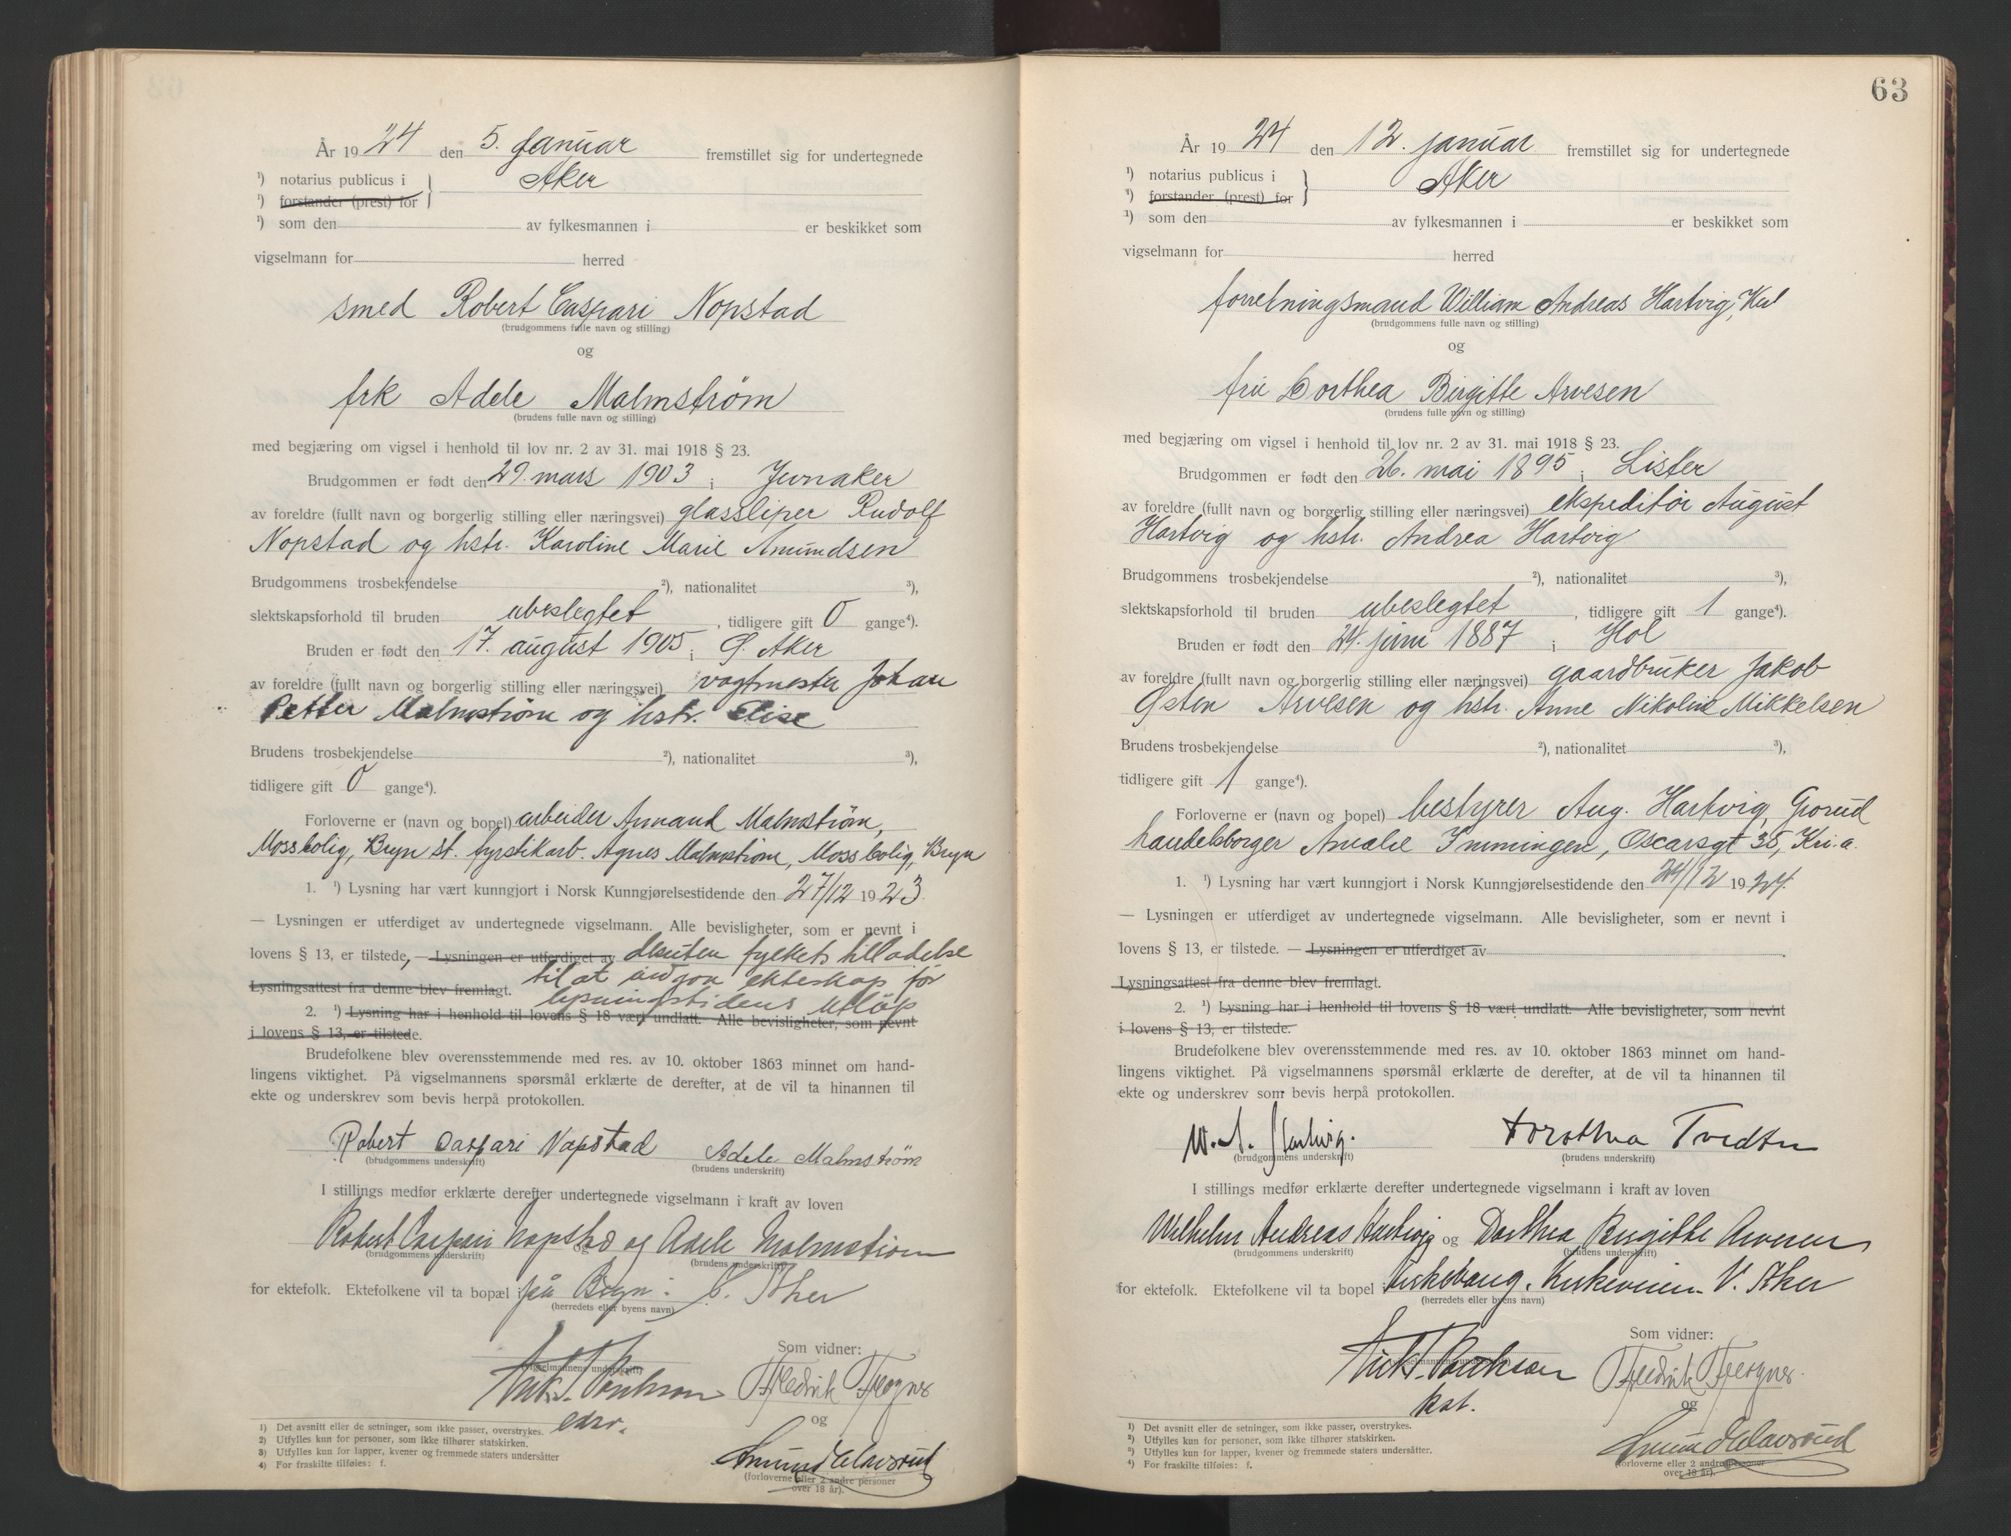 År 1924 den 5. Januar fremstillet sig for undertegnede
¹) notarius publicus i } Aker
¹) forstander (prest) for
¹) som den av fylkesmannen i er beskikket som
vigselmann for herred
smed Robert Caspari Nopstad
(brudgommens fulle navn og stilling)
og
frk Adele Malmstrøm
(brudens fulle navn og stilling)
med begjæring om vigsel i henhold til lov nr. 2 av 31. mai 1918 § 23.
Brudgommen er født den 29. mars 1903 i Jevnaker
av foreldre (fullt navn og borgerlig stilling eller næringsvei) glassliper Rudolf
Nopstad og hstr. Karoline Marie Amundsen
Brudgommens trosbekjendelse ²), nationalitet ³),
slektskapsforhold til bruden ubeslegtet, tidligere gift 0 gange⁴).
Bruden er født den 17. august 1905 i Ø. Aker
av foreldre (fullt navn og borgerlig stilling eller næringsvei) vagtmester Johan
Petter Malmstrøm og hstr. Elise
Brudens trosbekjendelse ²), nationalitet ³),
tidligere gift 0 gange⁴).
Forloverne er (navn og bopel) arbeider Armand Malmstrøm,
Mossbolig, Bryn st. fyrstikarb. Agnes Malmstrøm, Mossbolig, Bryn
1. ¹) Lysning har vært kunngjort i Norsk Kunngjørelsestidende den 27/12 1923.
— Lysningen er utferdiget av undertegnede vigselmann. Alle bevisligheter, som er nevnt i
lovens § 13, er tilstede, — Lysningen er utferdiget av desuten fylkets tilladelse
Lysningsattest fra denne blev fremlagt. til at indgaa ekteskap før
lysningstidens utløp
2. ¹) Lysning har i henhold til lovens § 18 vært undlatt. Alle bevisligheter, som nevnt
i lovens § 13, er tilstede.
Brudefolkene blev overensstemmende med res. av 10. oktober 1863 minnet om hand-
lingens viktighet. På vigselmannens spørsmål erklærte de derefter, at de vil ta hinannen til
ekte og underskrev som bevis herpå protokollen.
Robert Caspari Nopstad Adele Malmstrøm
(brudgommens underskrift) (brudens underskrift)
I stillings medfør erklærte derefter undertegnede vigselmann i kraft av loven
Robert Caspari Nopstad og Adele Malmstrøm
(brudgommens underskrift) (brudens underskrift)
for ektefolk. Ektefolkene vil ta bopæl i på Bryn i Ø. Aker
(herredets eller byens navn)
Som vidner:
(vigselmannens underskrift)
Fredrik
og
(forloverne eller 2 andre personer
over 18 år).
1) Det avsnitt eller de setninger, som ikke passer, overstrykes.
2) Utfylles kun for personer, som ikke tilhører statskirken.
3) Utfylles kun for lapper, kvener og fremmede staters undersåtter
4) For fraskilte tilføies: f.
63
År 1924 den 12. januar fremstillet sig for undertegnede
¹) notarius publicus i } Aker
¹) forstander (prest) for
¹) som den av fylkesmannen i er beskikket som
vigselmann for herred
forretningsmand William Andreas Hartvig,
(brudgommens fulle navn og stilling)
og
fru Dorthea Birgitte Arvesen
(brudens fulle navn og stilling)
med begjæring om vigsel i henhold til lov nr. 2 av 31. mai 1918 § 23.
Brudgommen er født den 26. mai 1895 i Lister
av foreldre (fullt navn og borgerlig stilling eller næringsvei) ekspeditør August
Hartvig og hstr. Andrea Hartvig
Brudgommens trosbekjendelse ²), nationalitet ³),
slektskapsforhold til bruden ubeslegtet, tidligere gift 1 gange⁴).
Bruden er født den 24. juni 1887 i Hol
av foreldre (fullt navn og borgerlig stilling eller næringsvei) gaardbruker Jakob
Østen Arvesen og hstr. Anne Nikoline Mikkelsen
Brudens trosbekjendelse ²), nationalitet ³),
tidligere gift 1 gange⁴).
Forloverne er (navn og bopel) bestyrer Aug. Hartvig, Grorud
handelsborger Amalie Immingen, Oscarsgt 35, Kr.i.a.
1. ¹) Lysning har vært kunngjort i Norsk Kunngjørelsestidende den 24/12 1924.
— Lysningen er utferdiget av undertegnede vigselmann. Alle bevisligheter, som er nevnt i
lovens § 13, er tilstede. — Lysningen er utferdiget av
Lysningsattest fra denne blev fremlagt.
2. ¹) Lysning har i henhold til lovens § 18 vært undlatt. Alle bevisligheter, som nevnt
i lovens § 13, er tilstede.
Brudefolkene blev overensstemmende med res. av 10. oktober 1863 minnet om hand-
lingens viktighet. På vigselmannens spørsmål erklærte de derefter, at de vil ta hinannen til
ekte og underskrev som bevis herpå protokollen.
W. A. Hartvig. Dorothea Tvedten
(brudgommens underskrift) (brudens underskrift)
I stillings medfør erklærte derefter undertegnede vigselmann i kraft av loven
Wilhelm Andreas Hartvig og Dorthea Birgitte Arvesen
(brudgommens underskrift) (brudens underskrift)
for ektefolk. Ektefolkene vil ta bopel i Kirkeveien V. Aker
(herredets eller byens navn)
Som vidner:
(vigselmannens underskrift)
Fredrik
og
(forloverne eller 2 andre personer
over 18 år).
¹) Det avsnitt eller de setninger, som ikke passer, overstrykes.
²) Utfylles kun for personer, som ikke tilhører statskirken.
³) Utfylles kun for lapper, kvener og fremmede staters undersåtter.
⁴) For fraskilte tilføies: f.